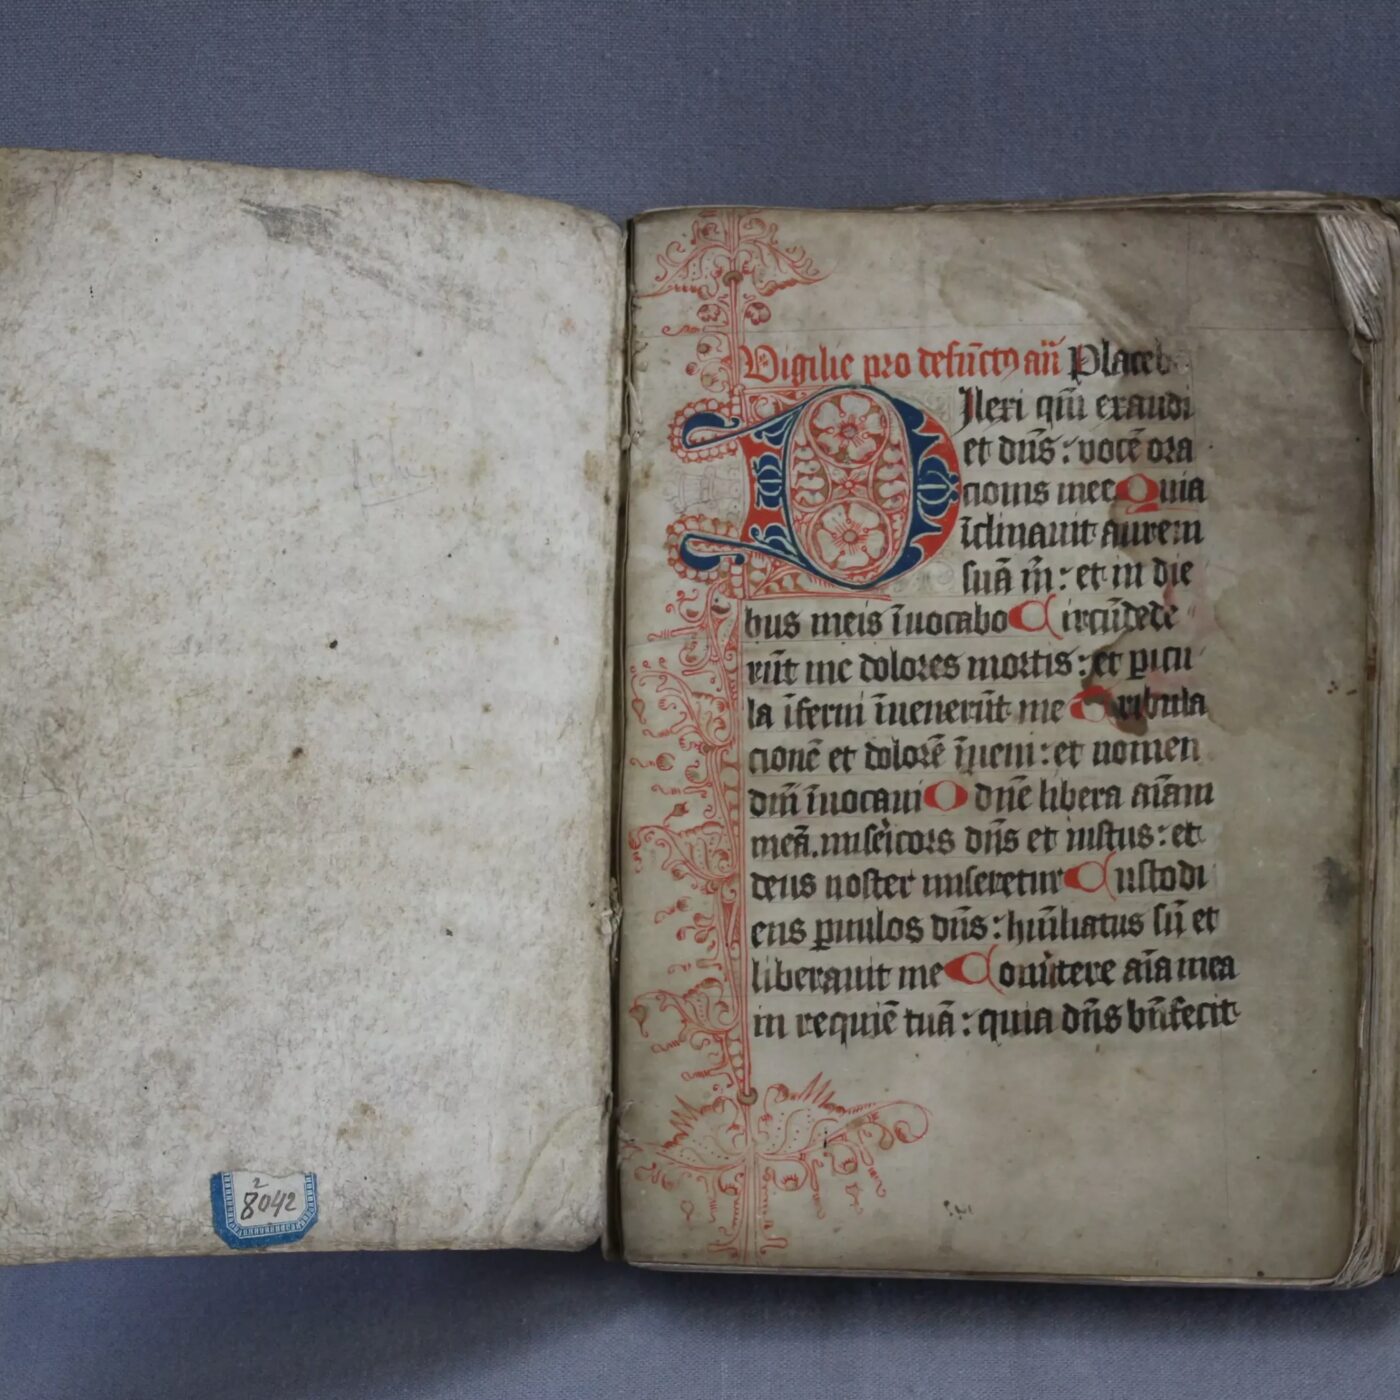 2
8042
Vigilie pro defūctoꝝ aīī Placebo
DIlexi qm̄ exaudi
et dn̄s : vocē ora
cionis mee Quia
īclinauit aurem
suā m̄ : et in die
bus meis īuocabo Circūdede
rūt me dolores mortis : et picu
la īferni īuenerūt me Tribula
cionē et dolorē īueni : et nomen
dn̄i īuocaui O dn̄e libera aīam
meā. misericors dn̄s et iustus : et
deus noster miseretur Custodi
ens puulos dn̄s : hūiliatus sū et
liberauit me Conūtere aīa mea
in requiē tuā : quia dn̄s bn̄fecit